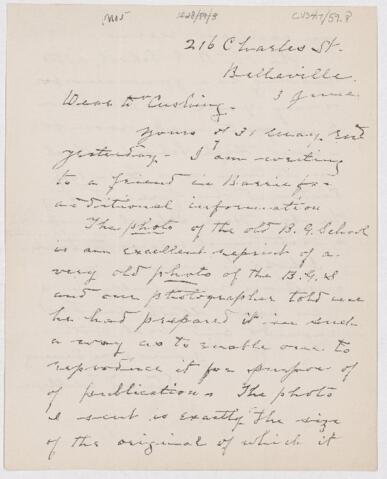 CUS417/59.8
216 Charles St.
Belleville.
3 June.
Dear Dr Cushing.
Yours of 31 May. recd
yesterday - I am writing
to a friend in Barrie for
additional information
The photo of the old B. G. School
is an excellent reprint of a
very old photo of the B. G. S
and our photographer told me
he had prepared it in such
a way as to enable one to
reproduce it for purpose of
of publication. The photo
I sent is exactly the size
of the original of which it